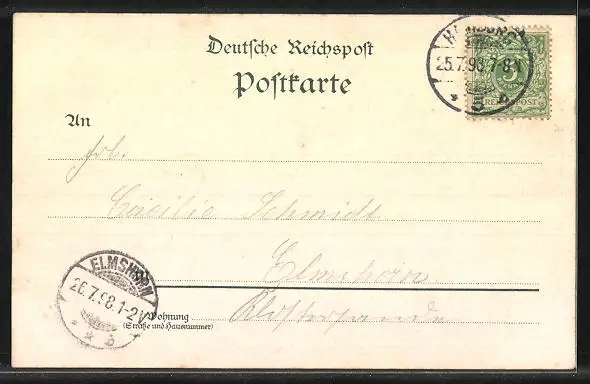 Deutsche Reichspost
Postkarte
HAMBURG
25.7.98.7-8N
5
REICHSPOST
An
Frl.
Cäcilie Schmidt
Elmshorn
ELMSHORN
26.7.98.1-2N
* * b
Wohnung
(Straße und Hausnummer)
Klostersande